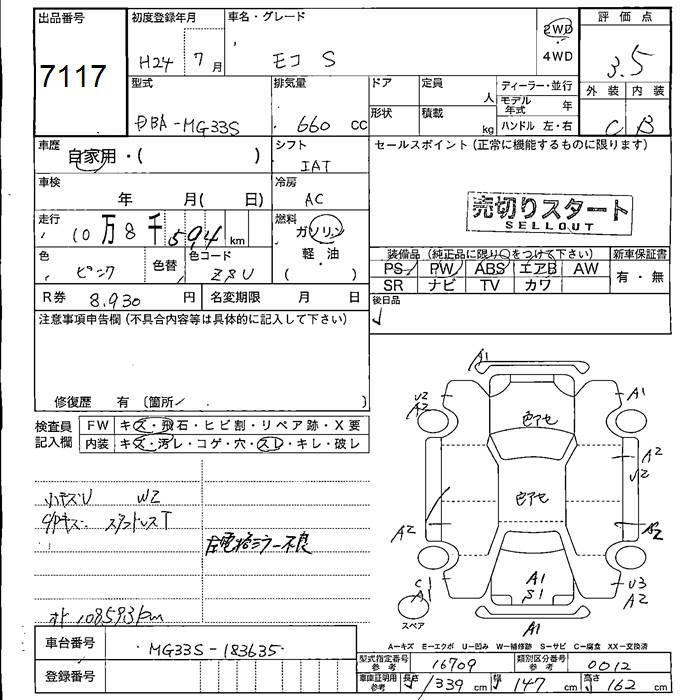 出品番号
7117
初度登録年月
H24 7月
車名・グレード
モコ S
2WD
4WD
評価点
3.5
外装 内装
C B
型式
DBA-MG33S
排気量
660 cc
ドア
形状
定員
人
積載
kg
ディーラー・並行
モデル年式 年
ハンドル 左・右
車歴
自家用・( )
シフト
IAT
セールスポイント(正常に機能するものに限ります)
売切りスタート
SELLOUT
車検
年 月( 日)
冷房
AC
走行
10万8千594km
燃料
ガソリン
軽・油
( )
色
ピンク
色替
色コード
Z8U
装備品(純正品に限り○をつけて下さい)
PS PW ABS エアB AW
SR ナビ TV カワ
新車保証書
有・無
R券 8,930円
名変期限 月 日
後日品
注意事項申告欄(不具合内容等は具体的に記入して下さい)
修復歴 有 〔箇所/ 〕
検査員記入欄
FW キズ・飛石・ヒビ割・リペア跡・X要
内装 キズ・汚レ・コゲ・穴・スレ・キレ・破レ
小キズU W2
スタットレスT
左電格ミラー不良
オト 108593km
A1
U2
A2
A1
色アセ
A2
U2
色アセ
A2
A2
C1
A1
A1
S1
U3
A2
スペア
A1
A-キズ E-エクボ U-凹み W-補修跡 S-サビ C-腐食 XX-交換済
車台番号 MG33S-183635
登録番号
型式指定番号参考 16709
類別区分番号参考 0012
車庫証明参考 長さ 339cm 幅 147cm 高さ 162cm